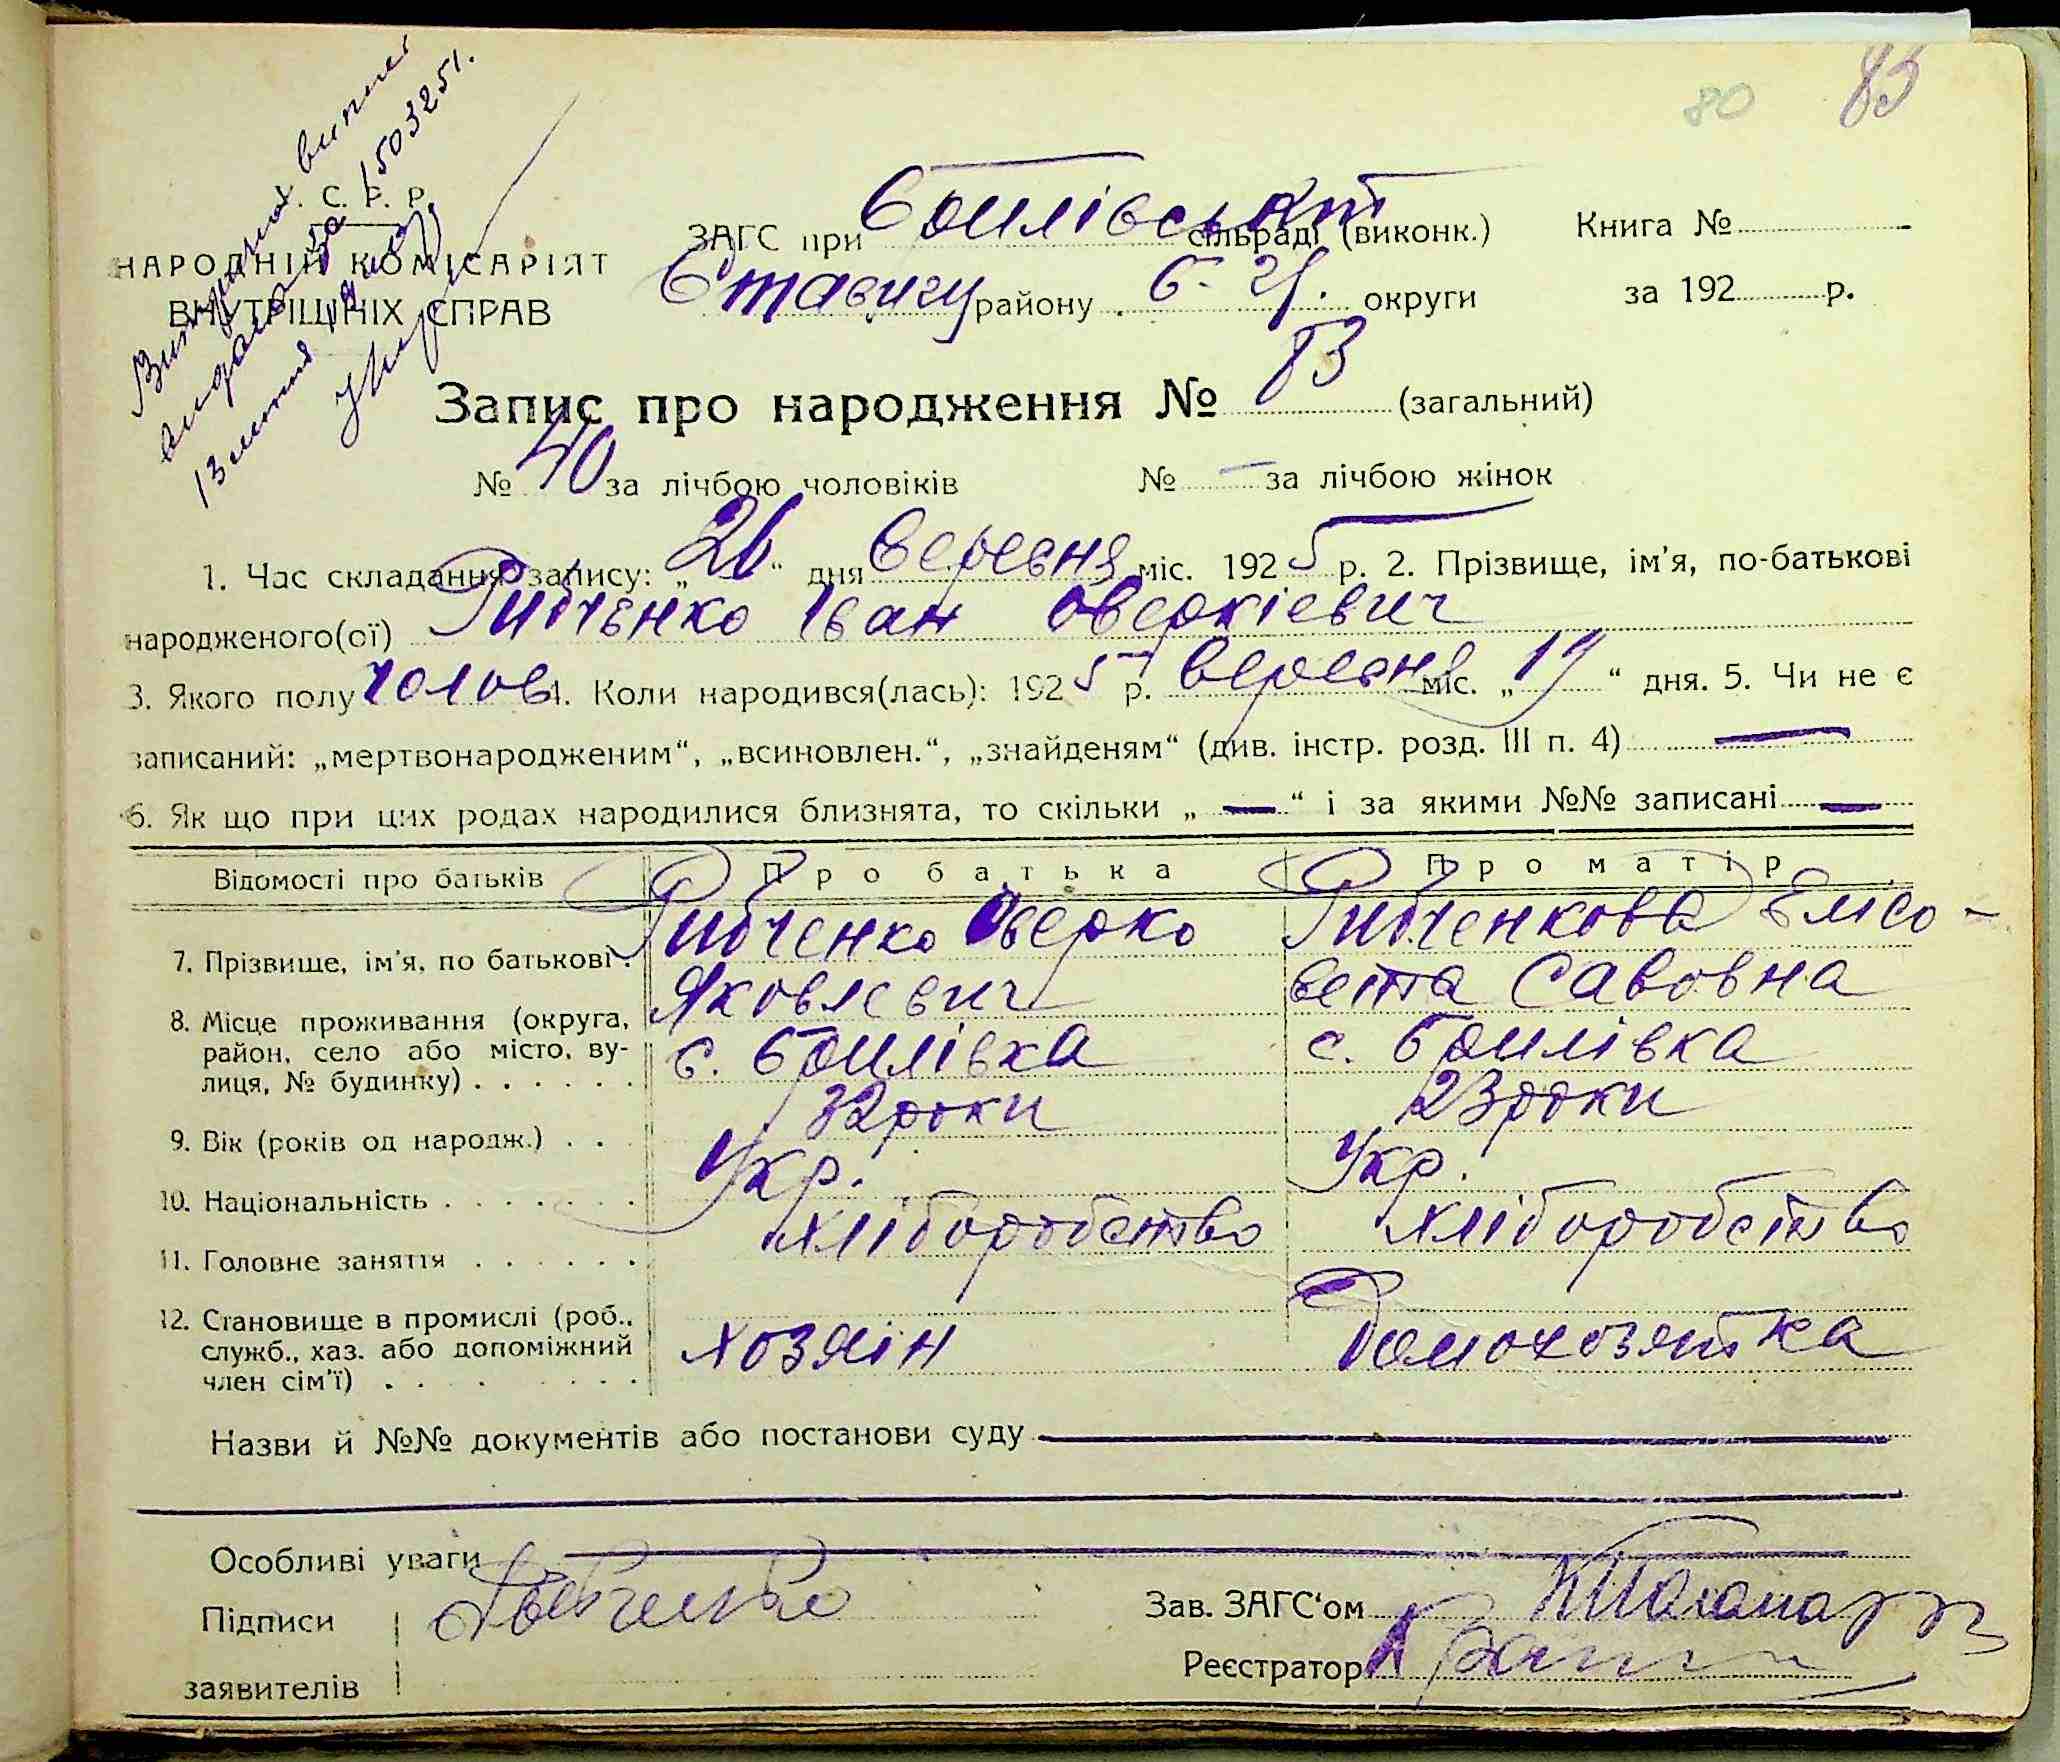 80 83
У. С. Р. Р.
НАРОДНІЙ КОМІСАРІЯТ
ВНУТРІШНІХ СПРАВ
ЗАГС при сільраді (виконк.) Книга №
району округи за 192 р.
Запис про народження № 83 (загальний)
№ 40 за лічбою чоловіків № – за лічбою жінок
1. Час складання запису: „26“ дня вересня міс. 1925 р. 2. Прізвище, ім'я, по-батькові
народженого(ої) Рибченко Іван Оверкієвич
3. Якого полу чолов 4. Коли народився(лась): 1925 р. вересня міс. „19“ дня. 5. Чи не є
записаний: „мертвонародженим“, „всиновлен.“, „знайденям“ (див. інстр. розд. III п. 4) —
6. Як що при цих родах народилися близнята, то скільки „—“ і за якими №№ записані —
Відомості про батьків Про батька Про матір
7. Прізвище, ім'я, по батькові. Рибченко Оверко Рибченкова Елісо-
Яковлевич вета Савовна
8. Місце проживання (округа,
район, село або місто, ву-
лиця, № будинку) . . . . . . с. Брилівка с. Брилівка
9. Вік (років од народж.) . . 32 роки 23 роки
10. Національність . . . . . . . Укр. Укр.
11. Головне заняття . . . . . . хліборобство хліборобство
12. Становище в промислі (роб.,
служб., хаз. або допоміжний
член сім'ї) . . . . . . . хозяін Домохозяйка
Назви й №№ документів або постанови суду
Особливі уваги
Підписи Зав. ЗАГС'ом
заявителів Реєстратор